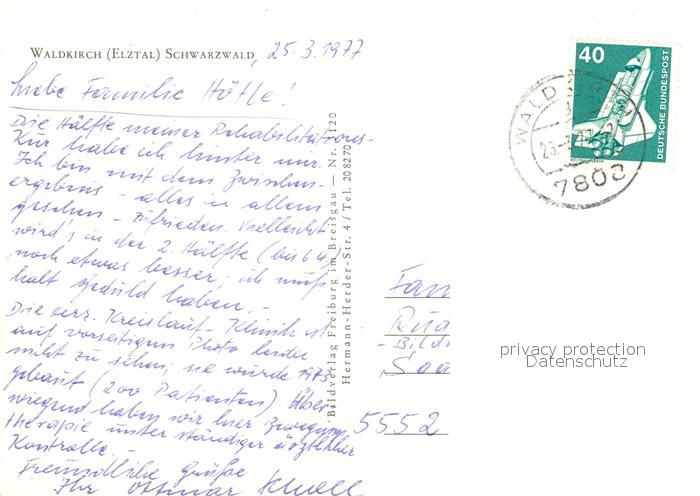 WALDKIRCH (ELZTAL) SCHWARZWALD, 25.3.1977
Liebe Familie Höfle!
Die Hälfte meiner Rehabilitations-
Kur habe ich hinter mir.
Ich bin mit dem Zwischen-
ergebnis - alles in allem
gesehen - zufrieden. Vielleicht
wird's in der 2. Hälfte (bis 6.4.)
noch etwas besser; ich muß
halt Geduld haben. -
Die Kreislauf-Klinik ist
auf vorseitigem Photo leider
nicht zu sehen; sie wurde 1973
gebaut (200 Patienten) Über-
wiegend haben wir hier Bewegungs-
therapie unter ständiger ärztlicher
Kontrolle. -
Freundliche Grüße
Ihr Ottmar
Bildverlag Freiburg im Breisgau — Nr. 1120
Hermann-Herder-Str. 4 / Tel. 208270
40
DEUTSCHE BUNDESPOST
WALD
7808
Fam
- Bild
Saa
5552
privacy protection
Datenschutz